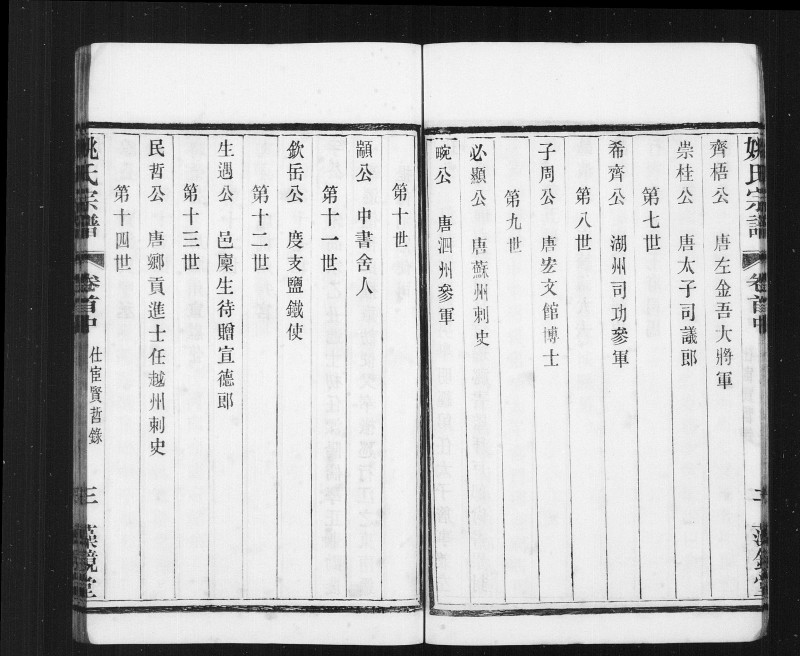 姚氏宗譜
卷首中
三
藻鏡堂
齊梧公 唐左金吾大將軍
崇桂公 唐太子司議郎
第七世
希齊公 湖州司功參軍
第八世
子周公 唐宏文館博士
第九世
必顯公 唐蘇州刺史
畹公 唐泗州參軍
第十世
顓公 中書舍人
第十一世
欽岳公 度支鹽鐵使
第十二世
生遇公 邑廩生待贈宣德郎
第十三世
民哲公 唐鄉貢進士任越州刺史
第十四世
姚氏宗譜
卷首中
仕宦賢哲錄
三
藻鏡堂